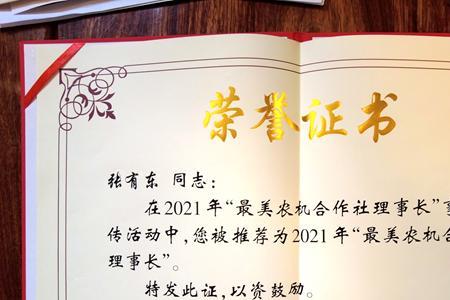 荣誉证书
张有东 同志:
在2021年“最美农机合作社理事长”事
传活动中,您被推荐为2021年“最美农机合
理事长”。
特发此证,以资鼓励。